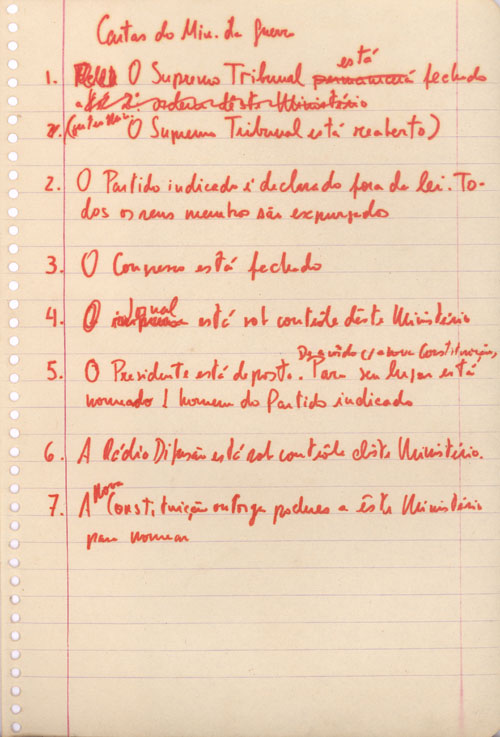 Cartas do Min. da Guerra
está
1. O Supremo Tribunal permanecerá fechado
2ª ordem dêste Ministério
O Supremo Tribunal está reaberto)
2. O Partido indicado é declarado fora da lei. To-
dos os seus membros são expurgados
3. O Congresso está fechado
4. O jornal está sob contrôle dêste Ministério
De acôrdo c/ a nova Constituição,
5. O Presidente está deposto. Para seu lugar está
nomeado 1 homem do Partido indicado
6. A Rádio Difusão está sob contrôle dêste Ministério.
nova
7. A Constituição outorga poderes a êste Ministério
para nomear